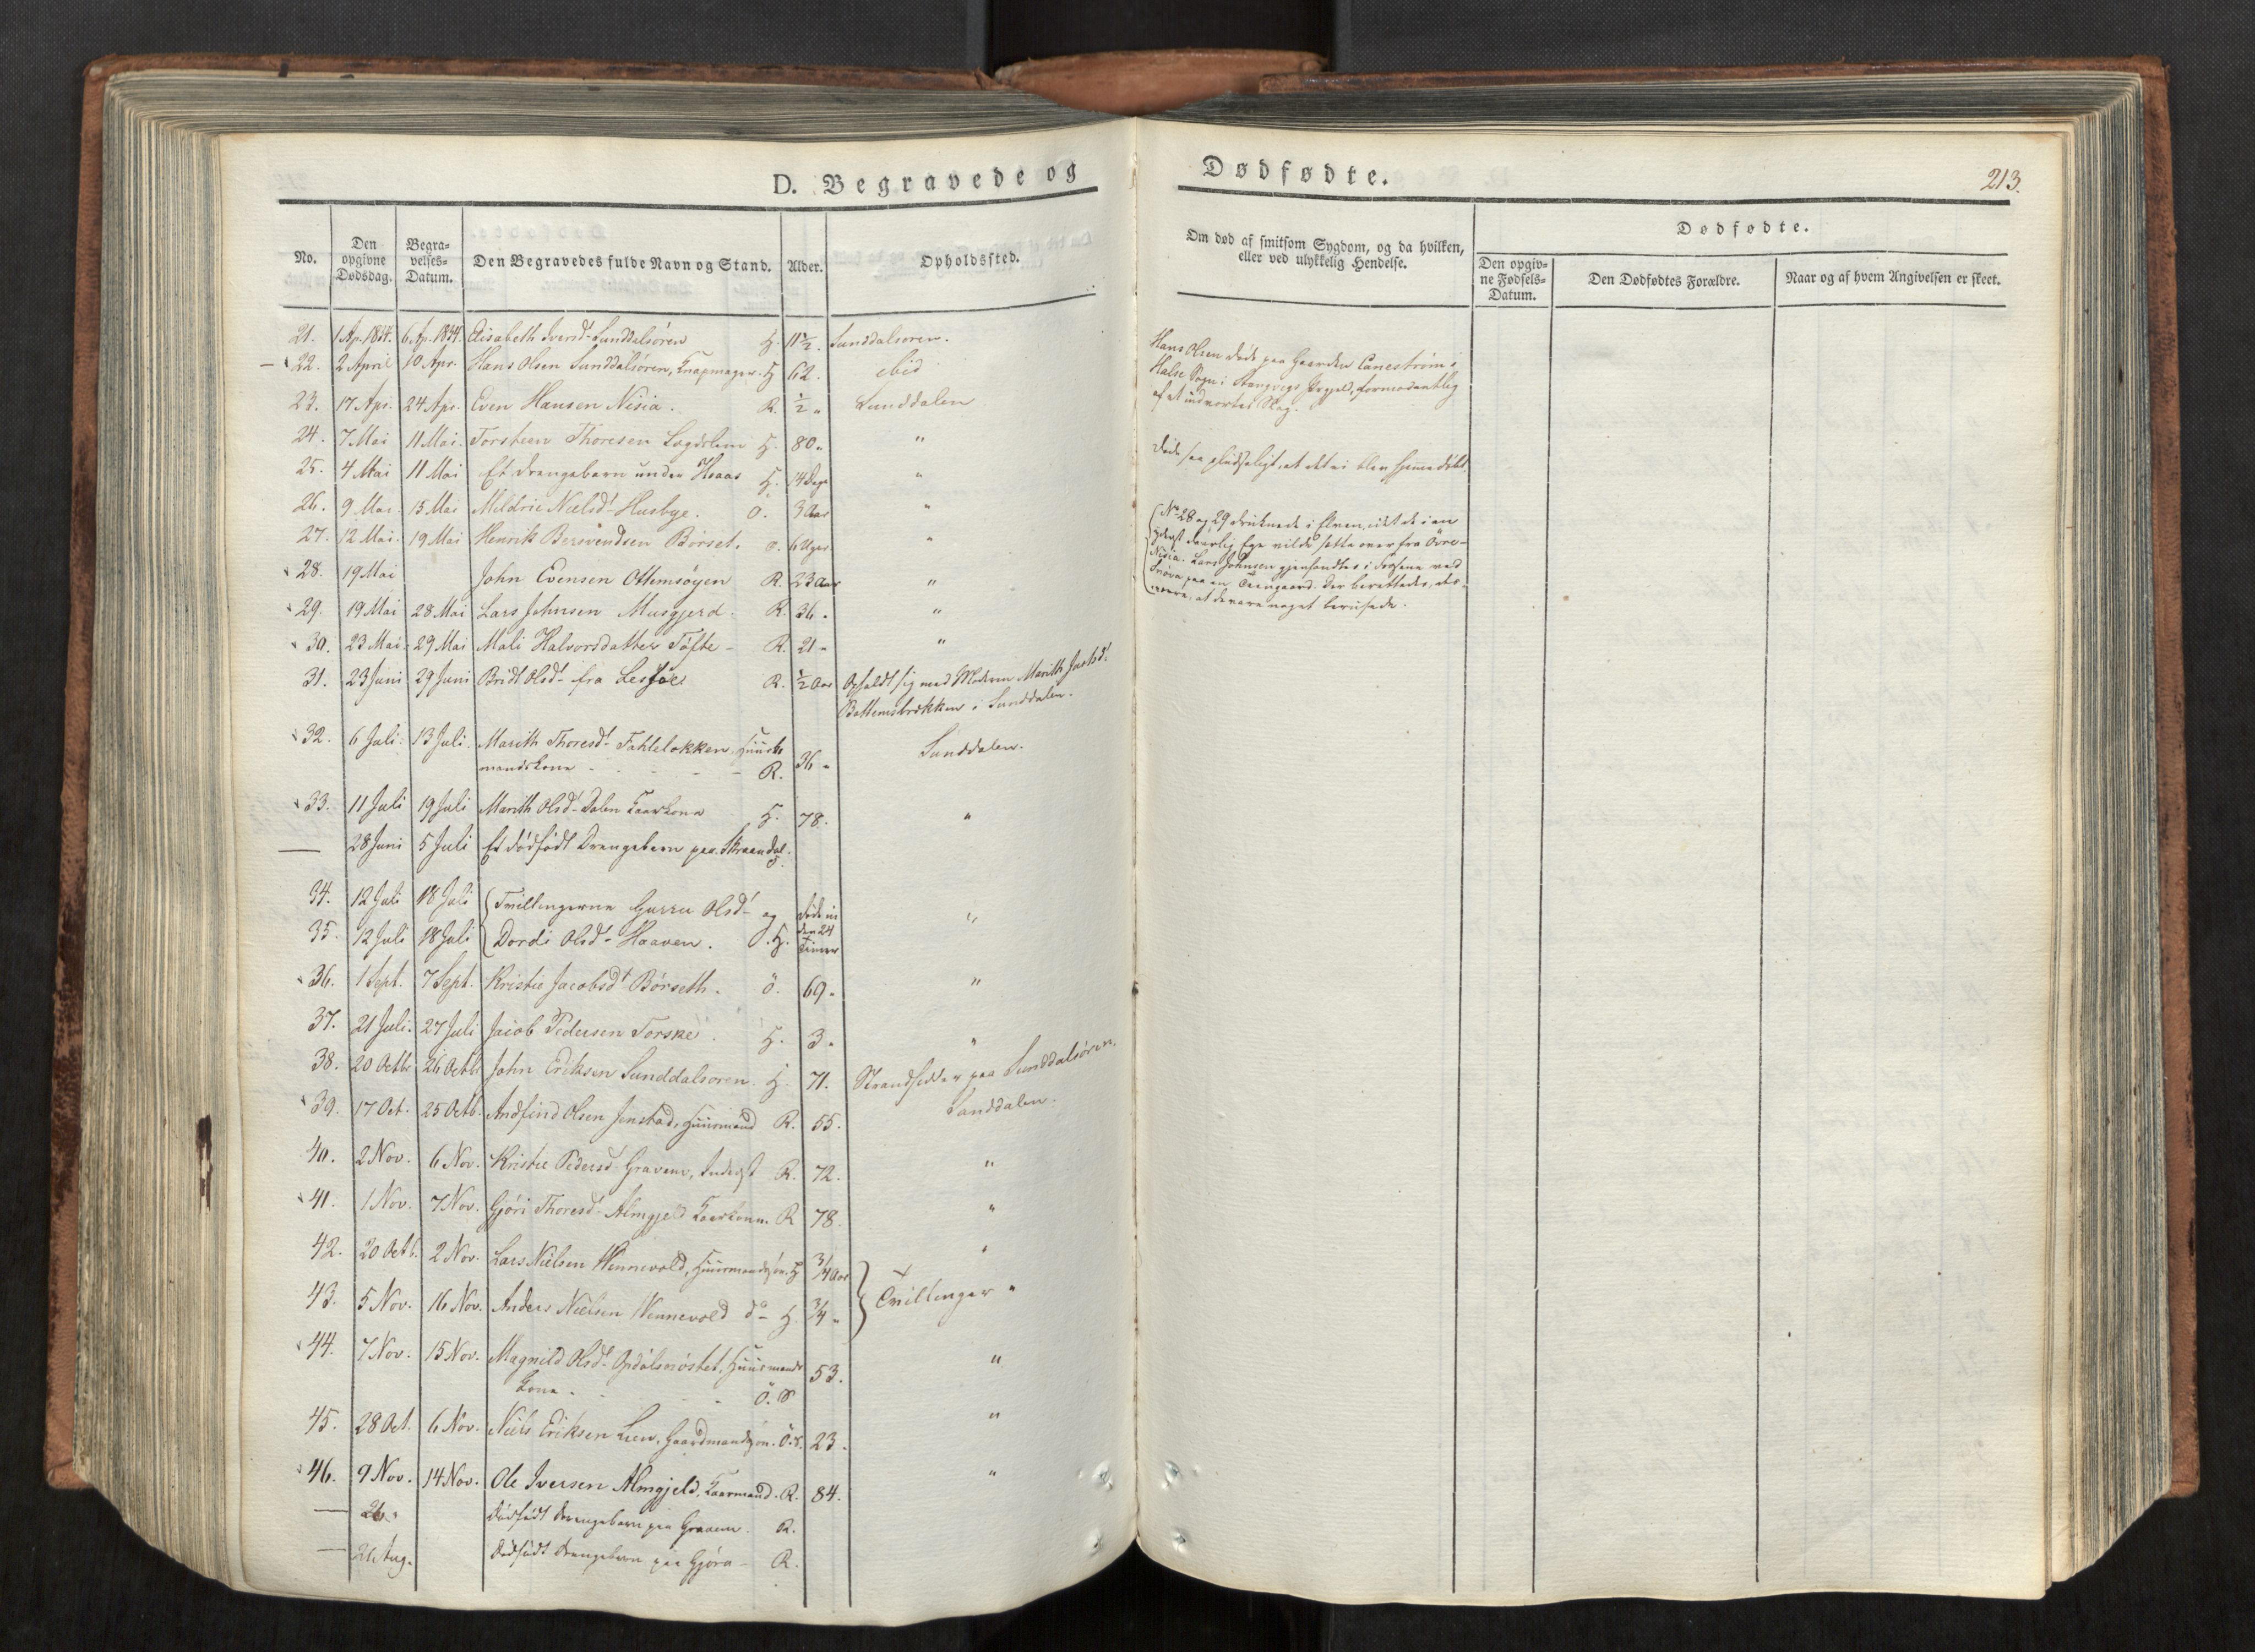 D. Begravede og
Dødfødte.
213.
No.
Den opgivne Dødsdag.
Begravelses-Datum.
Den Begravedes fulde Navn og Stand.
Alder.
Opholdssted.
Om død af smitsom Sygdom, og da hvilken,
eller ved ulykkelig Hendelse.
Dødfødte.
Den opgiv=
ne Fødsels=
Datum.
Den Dødfødtes Forældre.
Naar og af hvem Angivelsen er skeet.
21. 1 Ap. 1834. 6 Ap. 1834. Elisabeth Iversd. Sunddalsøren H. 11½. Sunddalsøren.
22. 2 April 10 Apr. Hans Olsen Sunddalsøren, Knapmager. H 62. ibid
23. 17 Apr. 24 Apr. Even Hansen Nisia. R. ½ " Sunddalen
24. 7 Mai 11 Mai. Torsteen Thoresen H. 80. "
25. 4 Mai 11 Mai Et Drengebarn under Hoaas H. 14 Dage "
26. 9 Mai. 15 Mai Meldrie Nielsd. Husbye. Ö. 3 Aar "
27. 12 Mai. 19 Mai Henrik Bersvendsen Börset. Ö. 6 Uger "
28. 19 Mai John Evensen Ottemsøyen R. 23 Aar "
29. 19 Mai 28 Mai Lars Johnsen Musgjerd. R. 36. "
30. 23 Mai. 29 Mai Mali Halvorsdatter Töfte - R. 21 - "
31. 23 Juni 29 Juni Bridt Olsd. fra Lesjöe R. ½ Aar Opholdt sig med Moderen Marith
i Sunddalen.
32. 6 Juli. 13 Juli. Marith Thoresd. Fahleløkken, Huus-
mandskone - R. 36 - Sunddalen.
33. 11 Juli 19 Juli Marith Olsd. Dalen Kaarkone H. 78. "
— 28 Juni 5 Juli Et dødfødt Drengebarn paa
34. 12 Juli 18 Juli Tvillingerne Gurru Olsd. og døde in
35. 12 Juli 18 Juli Dordi Olsd. Haaven. H. den 24 Timer "
36. 1 Sept. 7 Sept. Kristie Jacobsd. Börseth. Ö. 69. "
37. 21 Juli. 27 Juli Jacob Pedersen Torske. H. 3. "
38. 20 Octbr 26 Octb. John Eriksen Sunddalsøren. H. 71. Strandsidder paa Sunddalsøren.
39. 17 Oct. 25 Octb. Andfind Olsen Jenstad, Huusmand R. 55. Sunddalen.
40. 2 Nov. 6 Nov. Kristie Pedersd. Gravem, Inderst R. 72. "
41. 1 Nov. 7 Nov. Gjöri Thoresd. Almgjeld Kaarkone. R 78. "
42. 20 Octb. 2 Nov. Lars Nielsen Wennevold, Huusmandssön. H 3/4 Aar "
43. 5 Nov. 16 Nov. Anders Nielsen Wennevold do - H 3/4 - Tvillinger "
44. 7 Nov. 15 Nov. Magnild Olsd. Huusmands
Kone - Ö. S 53. "
45. 28 Oct. 6 Nov. Niels Eriksen Lien, Gaardmandssön. Ö. S. 23. "
46. 9 Nov. 14 Nov. Ole Iversen Almgjeld, Kaarmand. R. 84. "
— 26. Dødfødt Drengebarn paa Gravem. R.
— 21 Aug. Dødfødt Drengebarn paa Gjöra - R.
Hans Olsen døde paa Gaarden Canestrøm i
Halse Sogn i Stangvigs Prgjeld, formodentlig
af et indvortes Slag.
Døde saa pludseligt, at det ei blev hjemmedöbt.
No 28 og 29 druknede i Elven, idet de i en
yderst daarlig Ege vilde sætte over fra Øvre-
Nisia. Lars Johnsen gjenfandtes i Fosene ved
paa en Der berettedes, des-
værre, at de vare noget berusede.